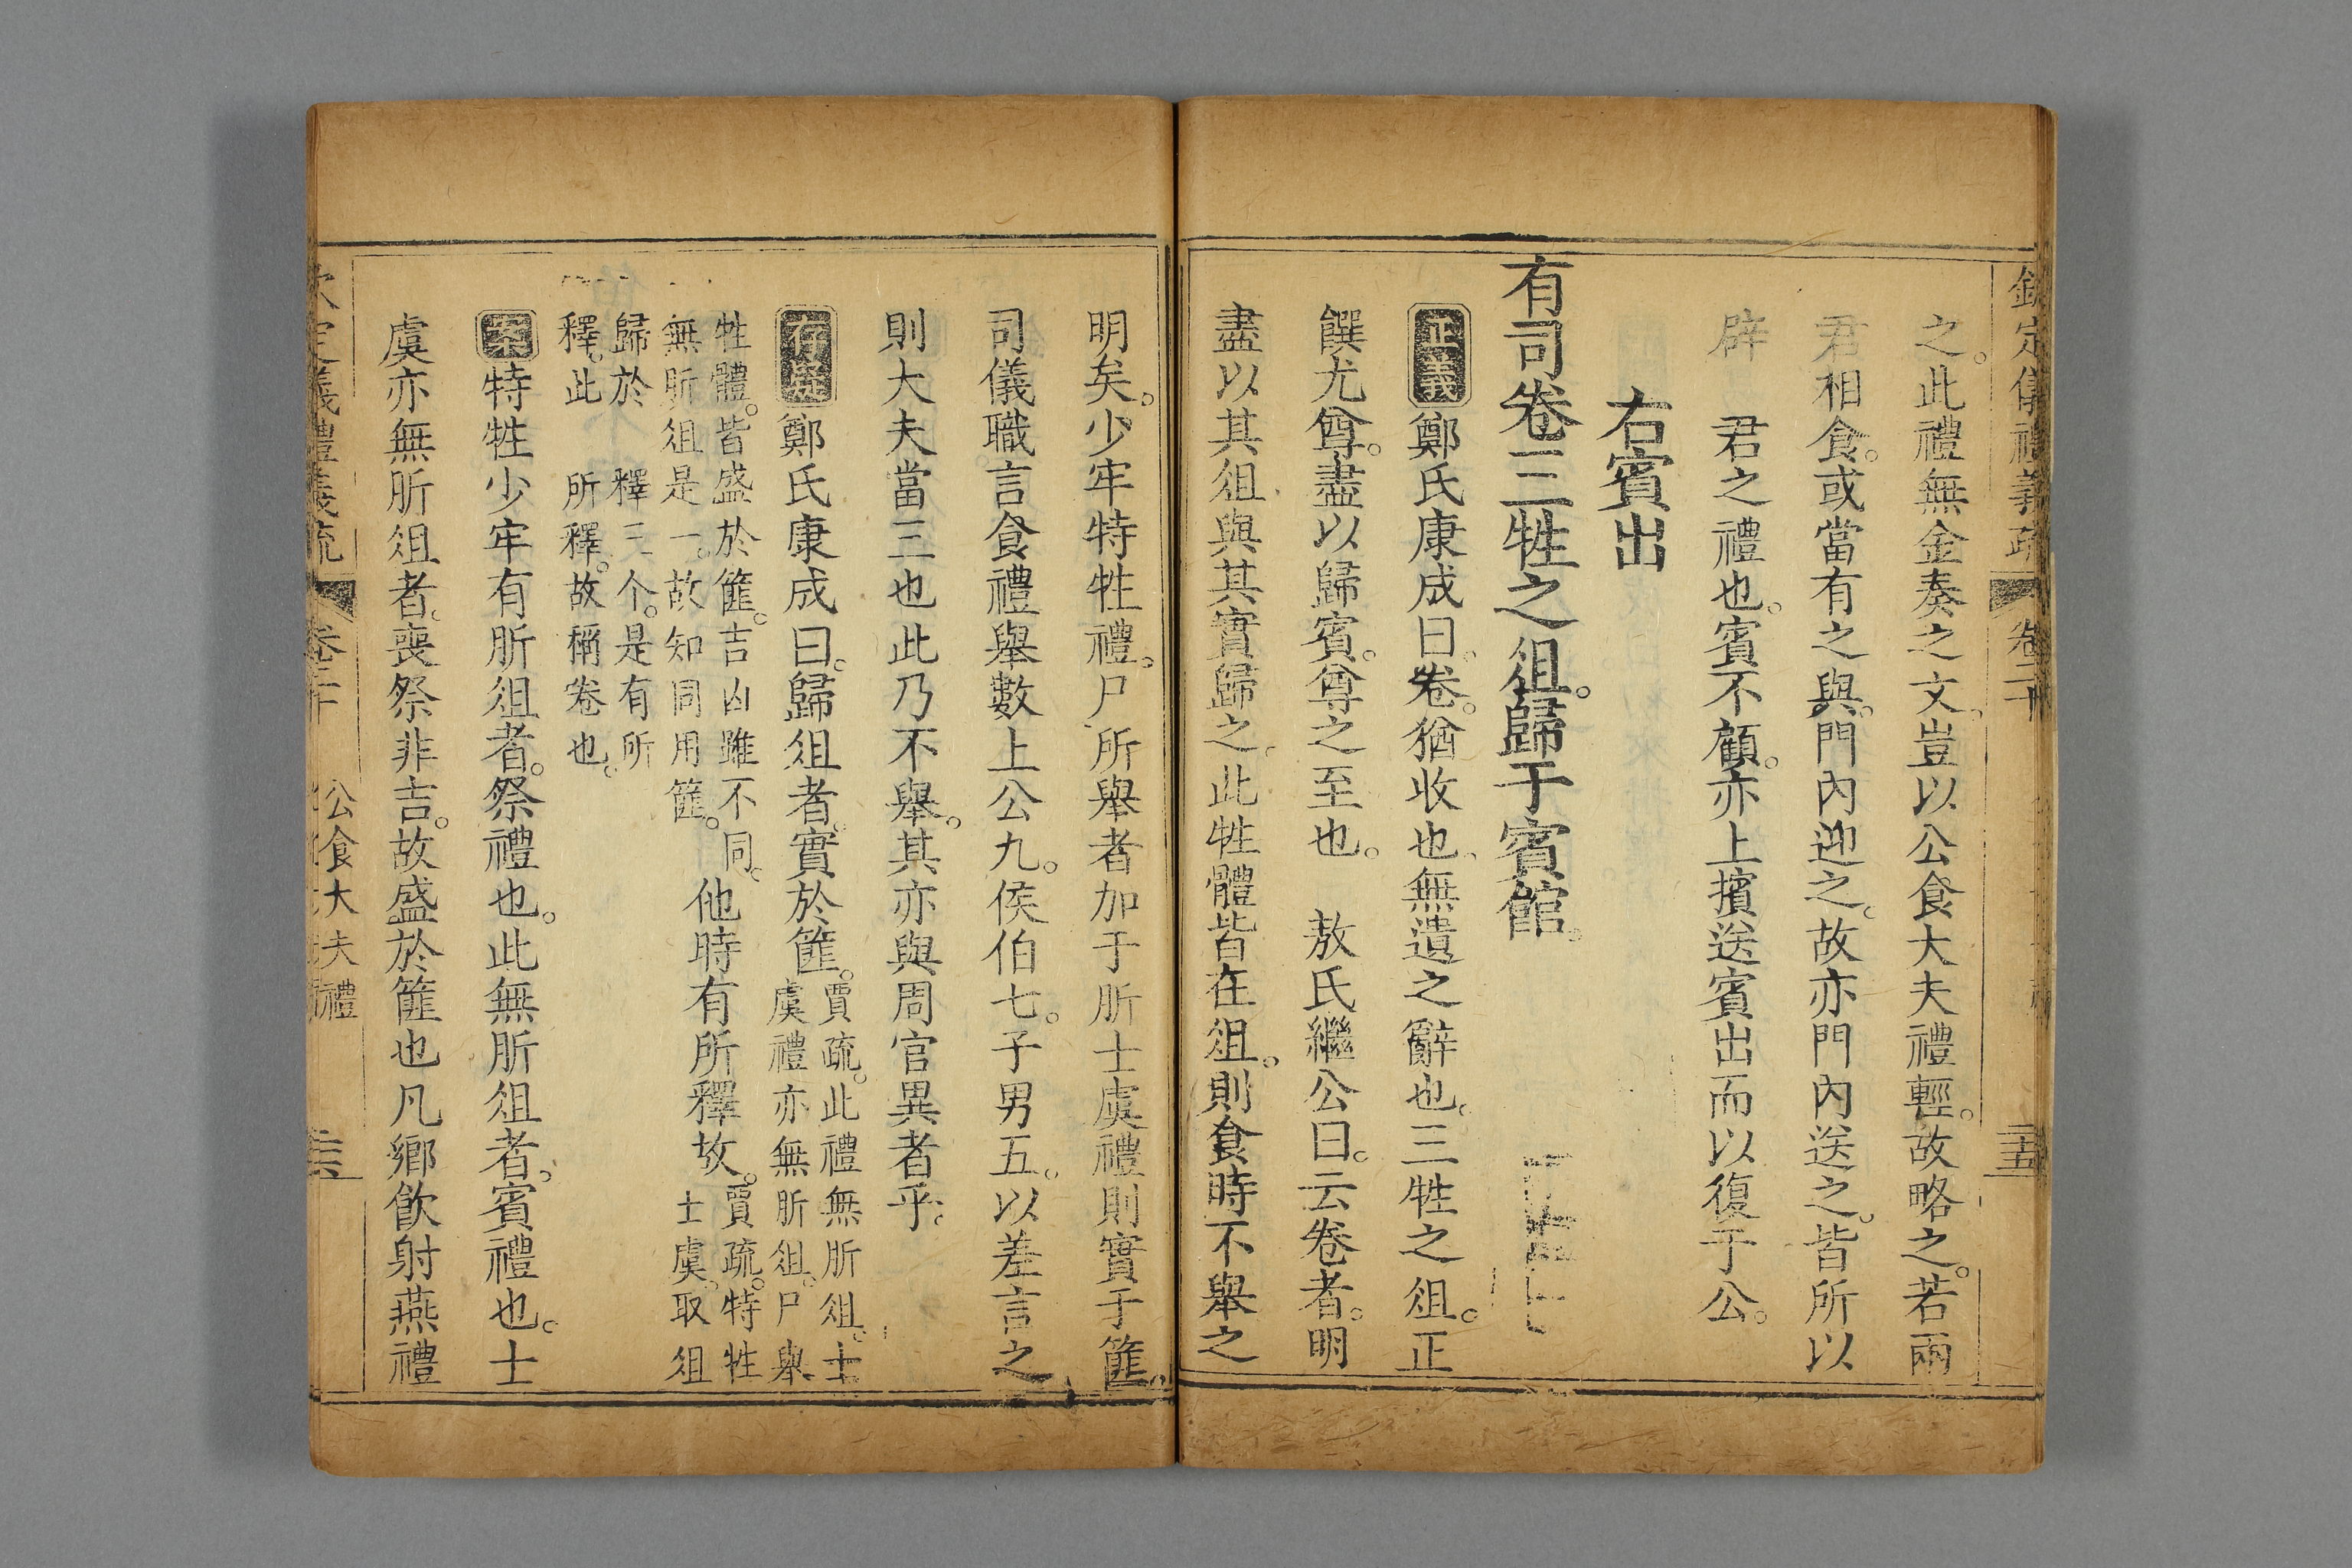 欽定儀禮義疏　卷二十　三五
之。此禮無金奏之文。豈以公食大夫禮輕。故略之。若兩
君相食。或當有之與。門內迎之。故亦門內送之。皆所以
辟　君之禮也。賓不顧。亦上擯送賓出而以復于公。
右賓出
有司卷三牲之俎。歸于賓館。
正義鄭氏康成曰。卷。猶收也。無遺之辭也。三牲之俎。正
饌尤尊。盡以歸賓。尊之至也。　敖氏繼公曰。云卷者。明
盡以其俎與其實歸之。此牲體皆在俎。則食時不舉之
明矣。少牢特牲禮。尸所舉者加于肵士虞禮則實于篚。
司儀職言食禮舉數上公九。侯伯七。子男五。以差言之
則大夫當三也此乃不舉。其亦與周官異者乎。
存疑鄭氏康成曰。歸俎者。實於篚。賈疏。此禮無肵俎。士虞禮亦無肵俎。尸舉
牲體。皆盛於篚。吉凶雖不同。無肵俎是一。故知同用篚。他時有所釋故。賈疏。特牲士虞。取俎
歸於　釋三个。是有所釋。此　所釋。故稱卷也。
案特牲少牢有肵俎者。祭禮也。此無肵俎者。賓禮也。士
虞亦無肵俎者。喪祭非吉。故盛於篚也凡鄉飲射燕禮
欽定儀禮義疏　卷二十　公食大夫禮